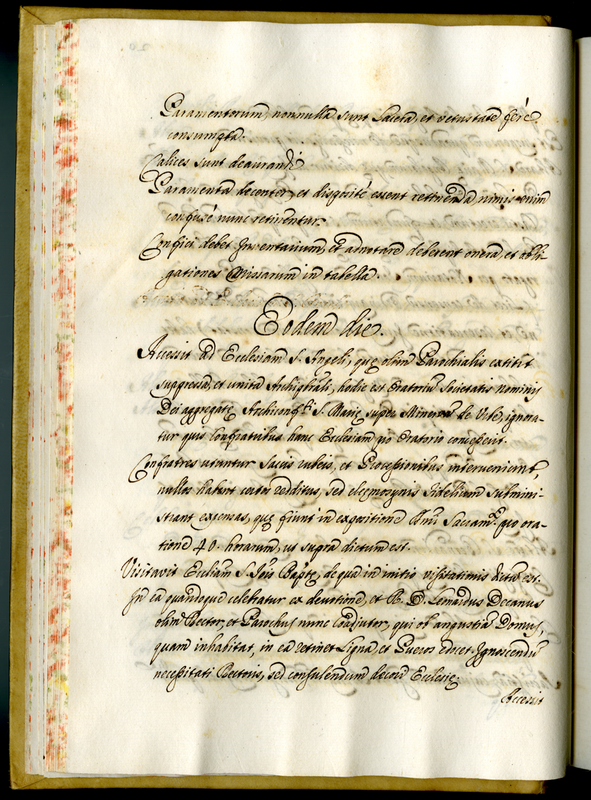 Paramentorum nonnulla sunt lacera, et vetustate ferè
consumpta.
Calices sunt deaurandi
Paramenta decenter, et dispositè essent retinenda nimis enim
confusè nunc retinentur.
Confici debet Inventarium, et adnotare deberent onera, et obli-
gationes Missarum in tabella.
Eodem die
Accessit ad Ecclesiam S. Angeli, quę olim Parochialis extitit
suppressa, et unita Archipbrali, hodie est Oratorium Societatis nominis
Dei aggregatę Archiconfrti S. Marię super Minervam de Urbe, ignora-
tur quis Confratribus hanc Ecclesiam pro Oratorio concesserit.
Confratres utuntur saccis rubeis, et Processionibus interveniunt,
nullos habent certos redditus, sed eleemosynis fidelium submini-
strant expensas, quę fiunt in expositione Ssmi Sacramti pro ora-
tione 40. horarum, ut supra dictum est.
Visitavit Eccliam S. Jois Bapte, de qua in initio visitationis dictum est.
In ea quandoque celebratur ex devotione, et R. D. Leonardus Decanus
olim Rector, et Parochus nunc Coadjutor, qui ob angustiam Domus,
quam inhabitat, in ea retinet Ligna, et Pueros docet. Ignoscendum
necessitati Rectoris, sed consulendum decori Ecclesię
Accessit